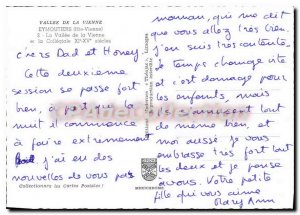 VALLEE DE LA VIENNE
EYMOUTIERS (Hte-Vienne)
2 - La Vallée de la Vienne
et la Collégiale XIe-XVe siècles
chers Dad et Honey
Cette deuxième
session se passe fort
bien, à part que la
nuit il commence
à faire extrêmement
froid j'ai eu des
nouvelles de vous par
Collectionnez les Cartes Postales !
maman, qui me dit
que vous allez très bien.
j'en suis très contente.
le temps change vite
et c'est dommage pour
les enfants mais
ils s'amusent tout
de même bien, et
moi aussi je vous
embrasse très fort tout
les deux et je pense
à vous. Votre petite
fille qui vous aime
Mary Ann